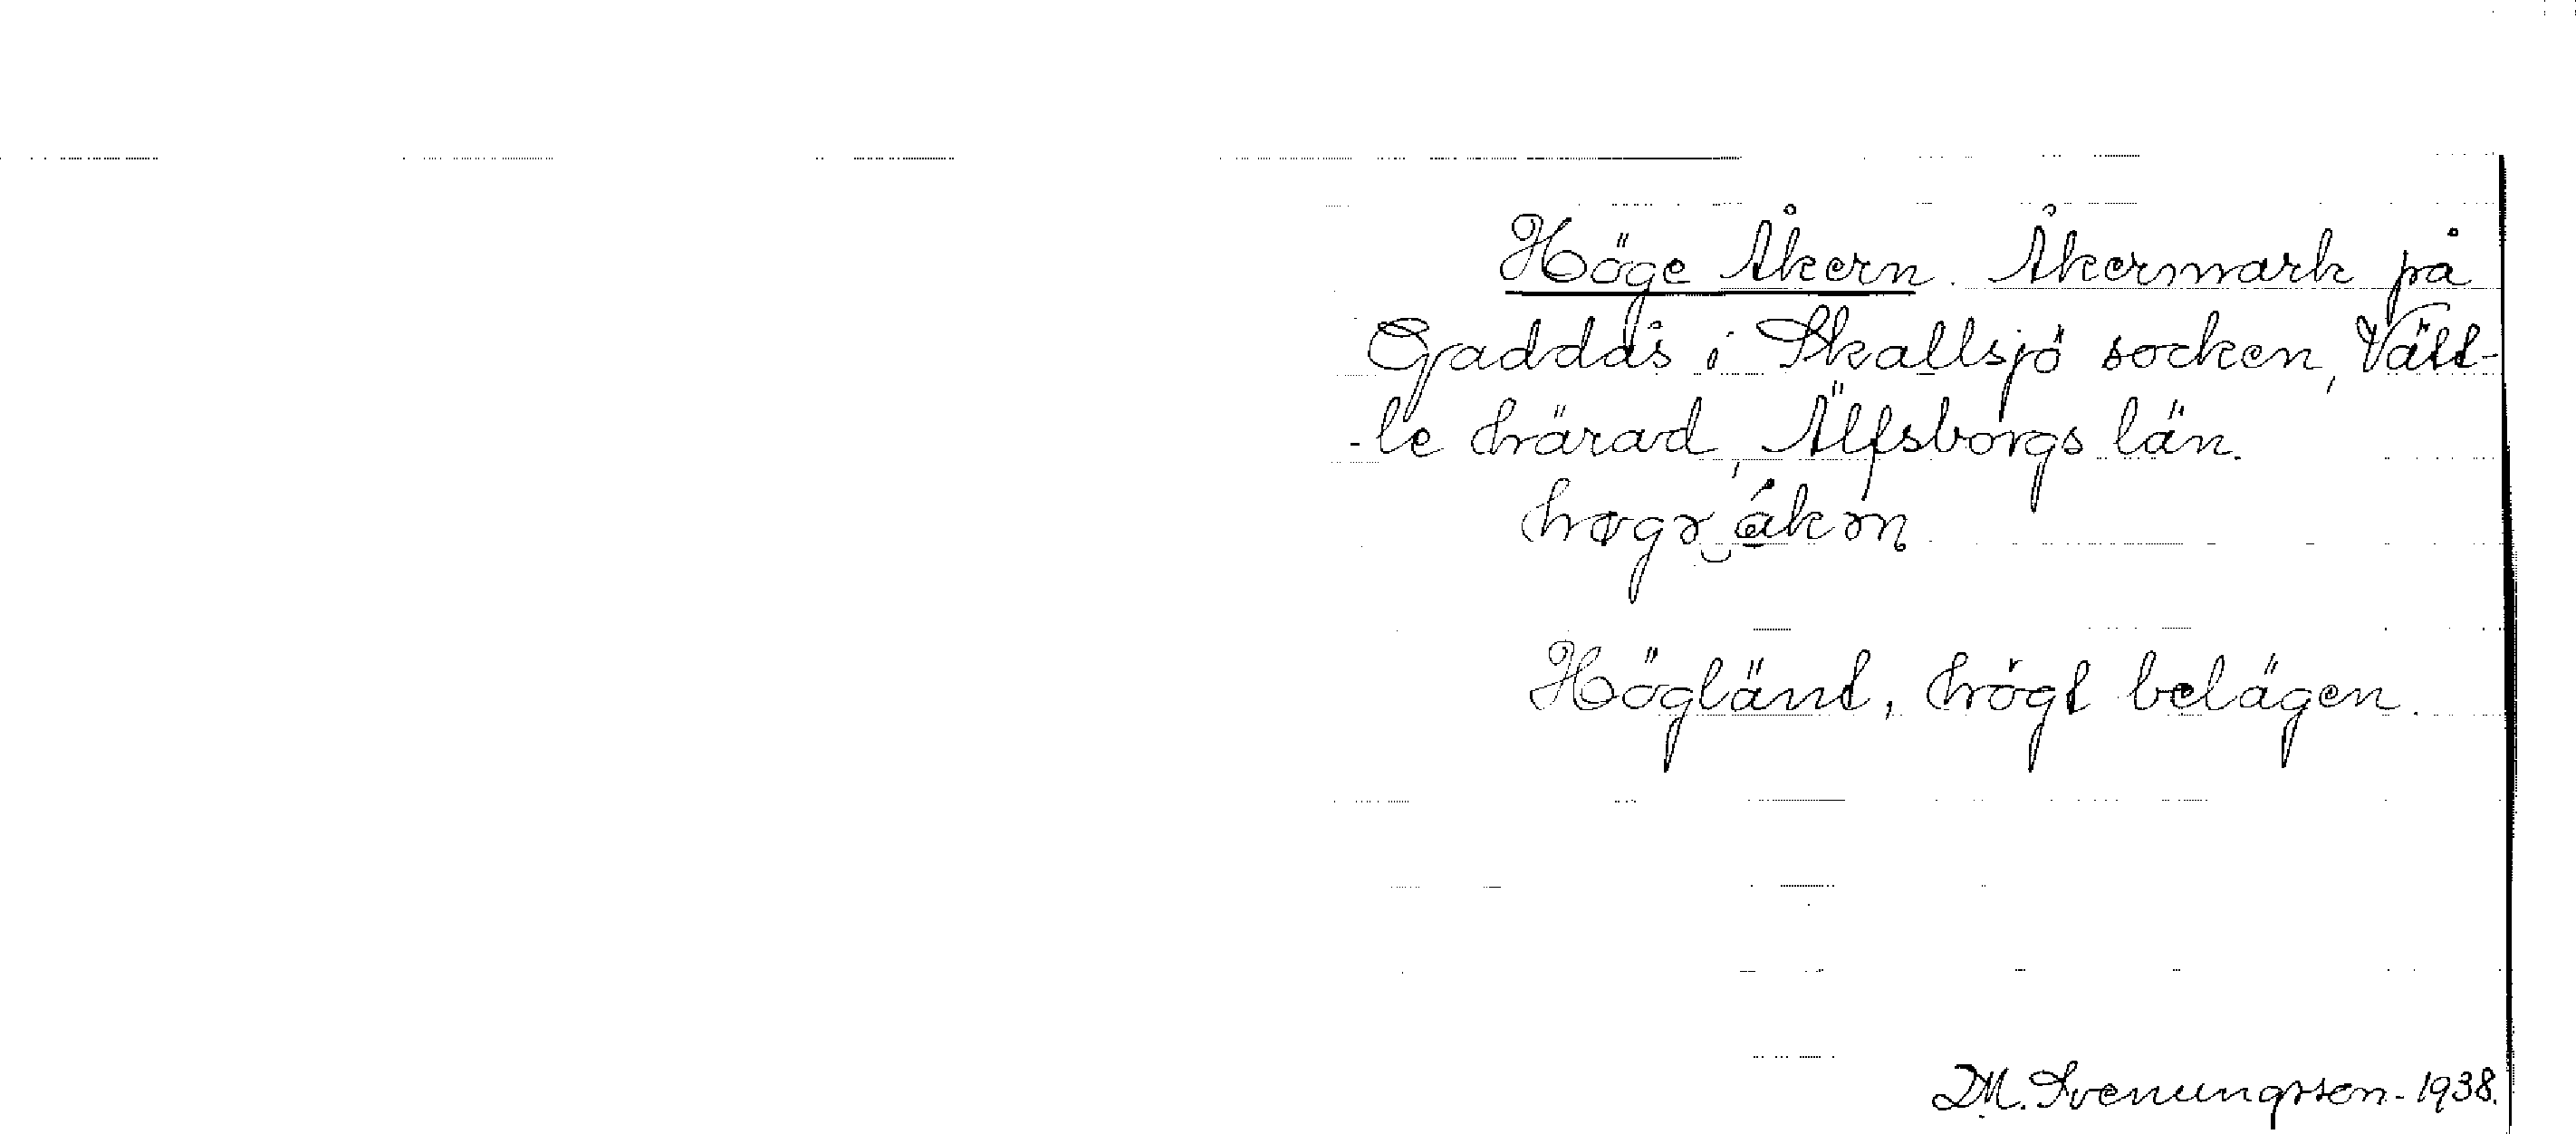 Höge Åkern. Åkermark på
Gaddås i Skallsjö socken, Vätt-
-le härad, Älfsborgs län.
Höglänt, högt belägen.
DM. Svenungsson - 1938.